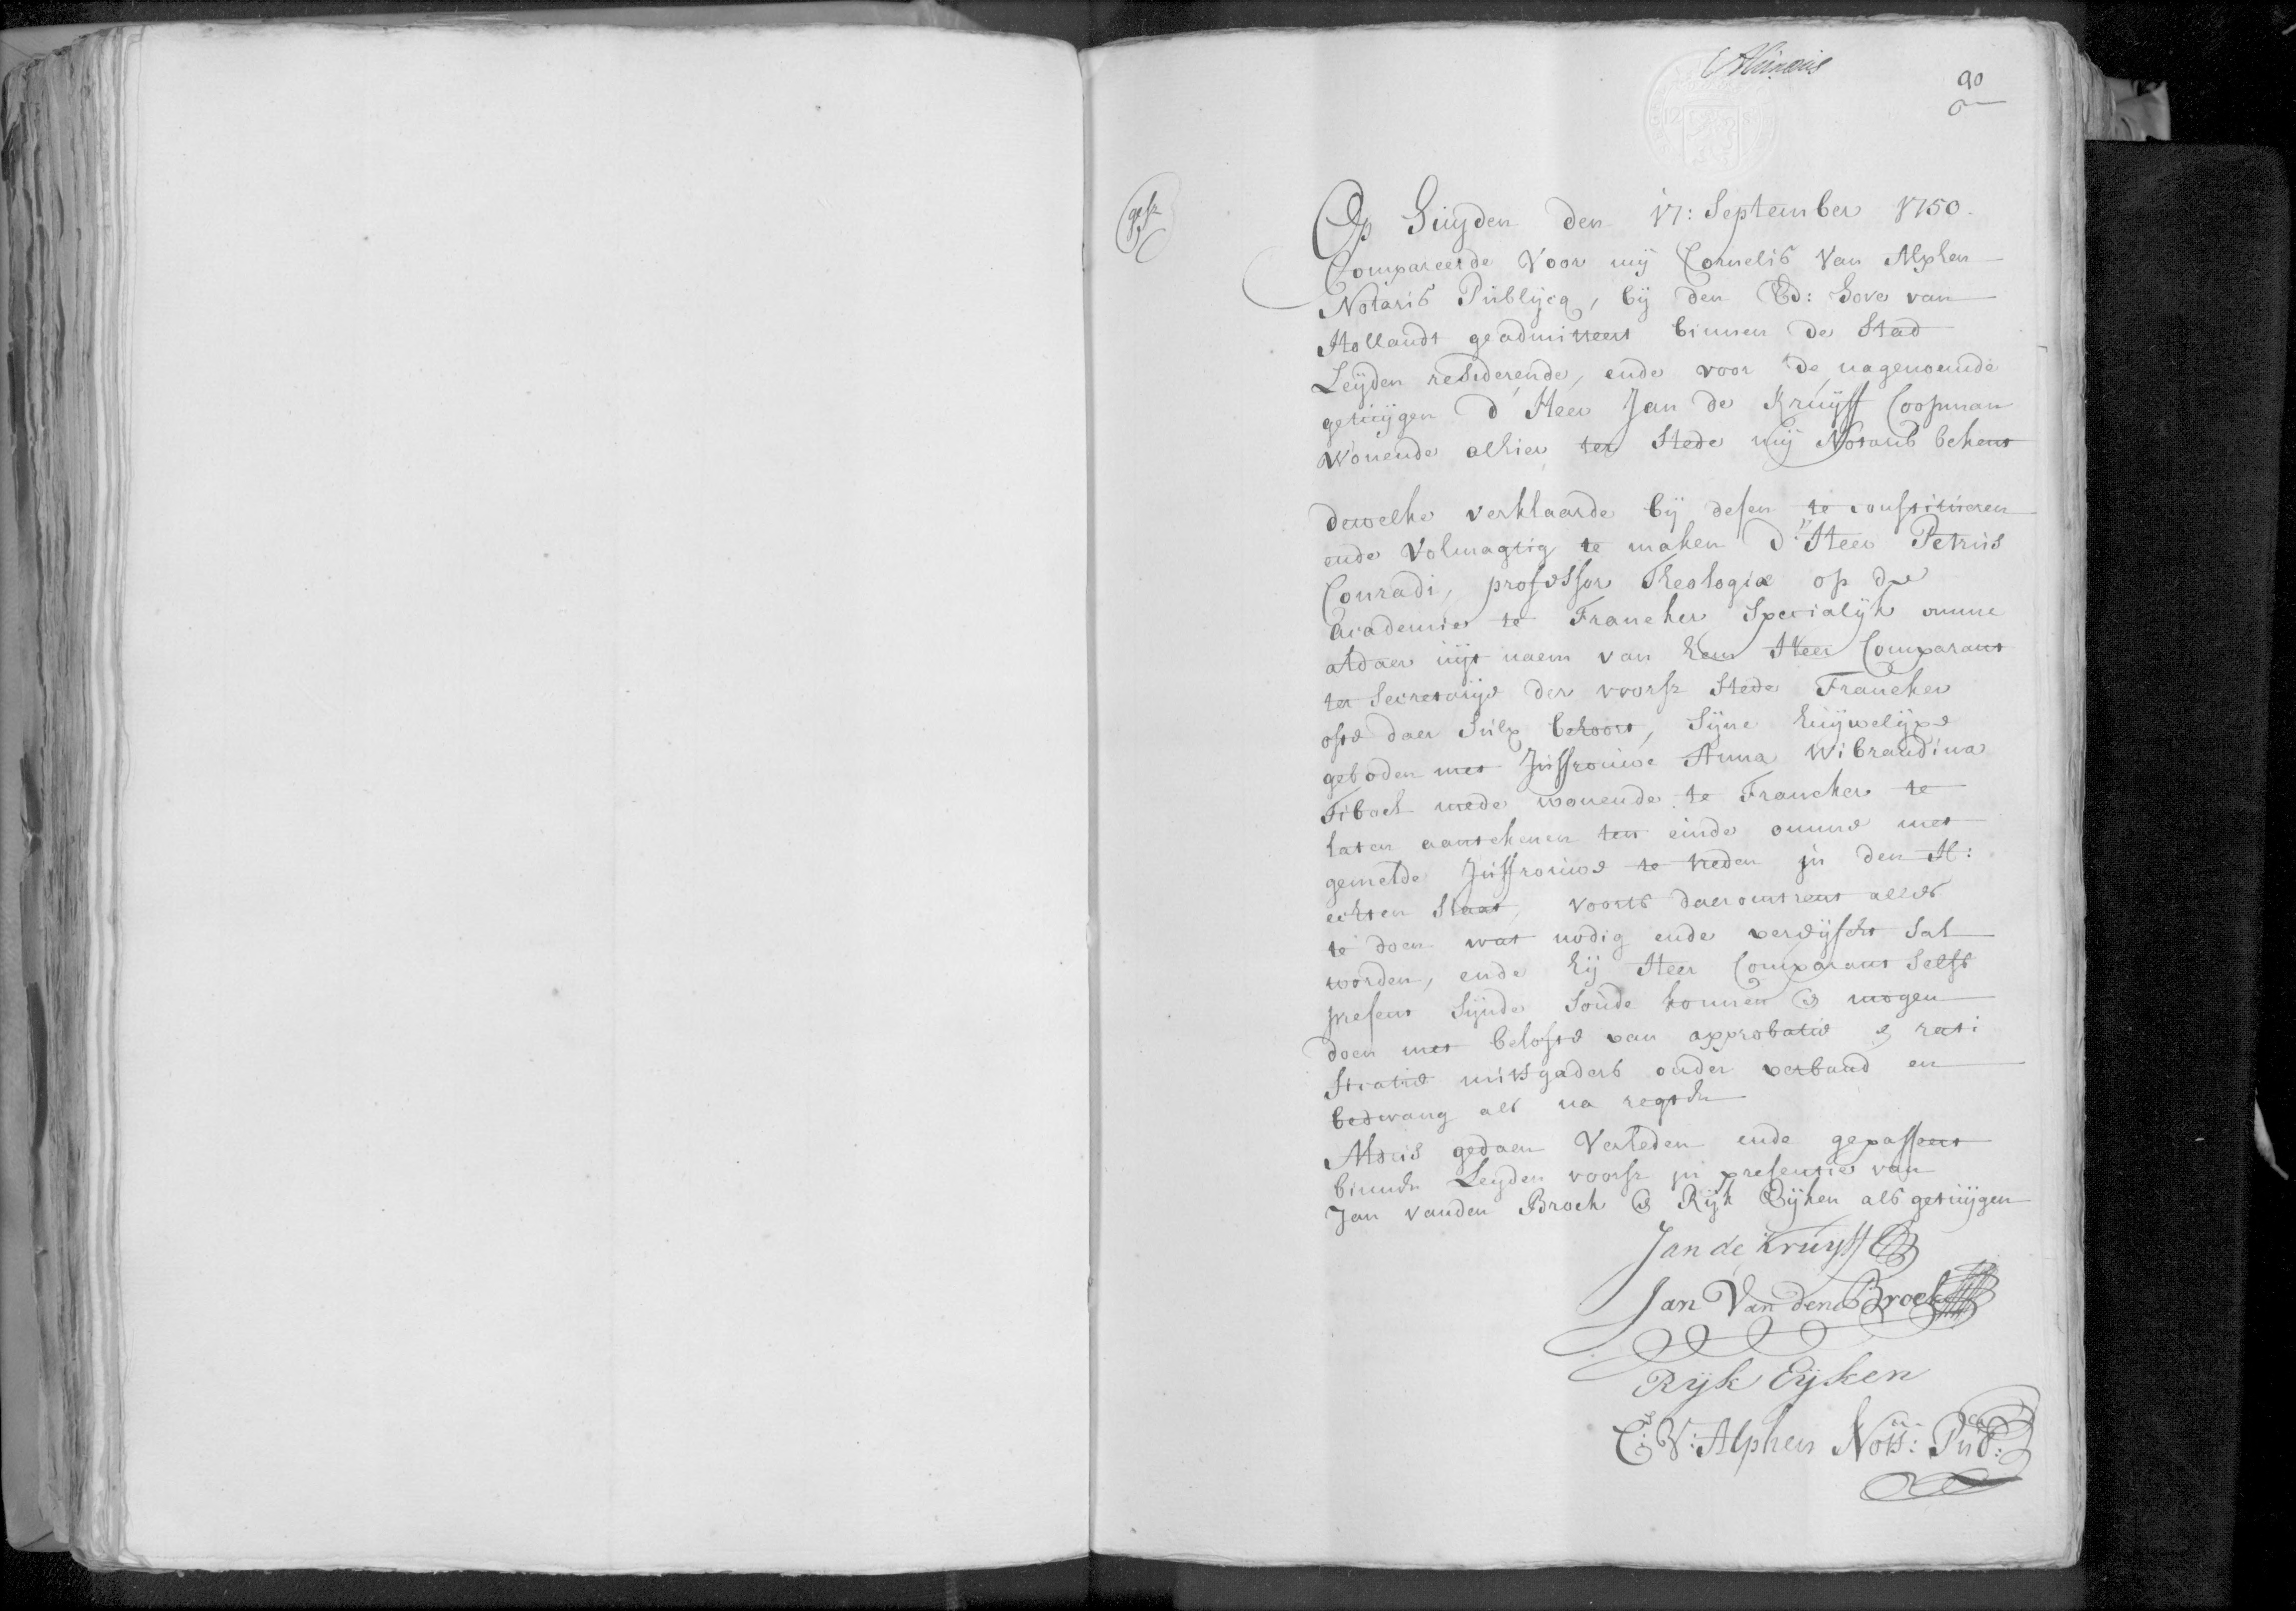 90
gesz
Op Huyden den 17: September 1750.
Compareerde Voor mij Cornelis Van Alphen
Notaris Publijcq, bij den Ed: Hove van
Hollandt geadmitteert binnen de Stad
Leijden residerende, ende voor de nagenoemde
getuijgen d' Heer Jan de Kruijff Coopman
Wonende alhier ter Stede mij Notaris bekent
dewelke verklaarde bij desen te constitueren
ende Volmagtig te maken d' Heer Petrus
Conradi, professor Theologiæ op de
Academie te Franeker Specialijk omme
aldaer uijt naem van hem Heer Comparant
ter Secretarije der voorsz Stede Franeker
ofte daer Sulx behoort, Sijne huijwelijxe
geboden met Juffrouwe Anna Wibrandina
Tiboel mede wonende te Franeker te
laten aantekenen ten einde omme met
gemelde Juffrouwe te treden in den H:
echten Staat, voorts daeromtrent alles
te doen wat nodig ende vereijscht Sal
worden, ende hij Heer Comparant Selfs
present Sijnde Soude konnen & mogen
doen met belofte van approbatie & rati
ficatie mitsgaders onder verband en
bedwang als na regten
Aldus gedaen Verleden ende gepasseert
binnen Leyden voorsz in presentie van
Jan vanden Broek & Rijk Eijken als getuijgen
Jan de Kruyff
Jan Van den Broek
Ryk Eyken
C:s V: Alphen Nots: Pub: